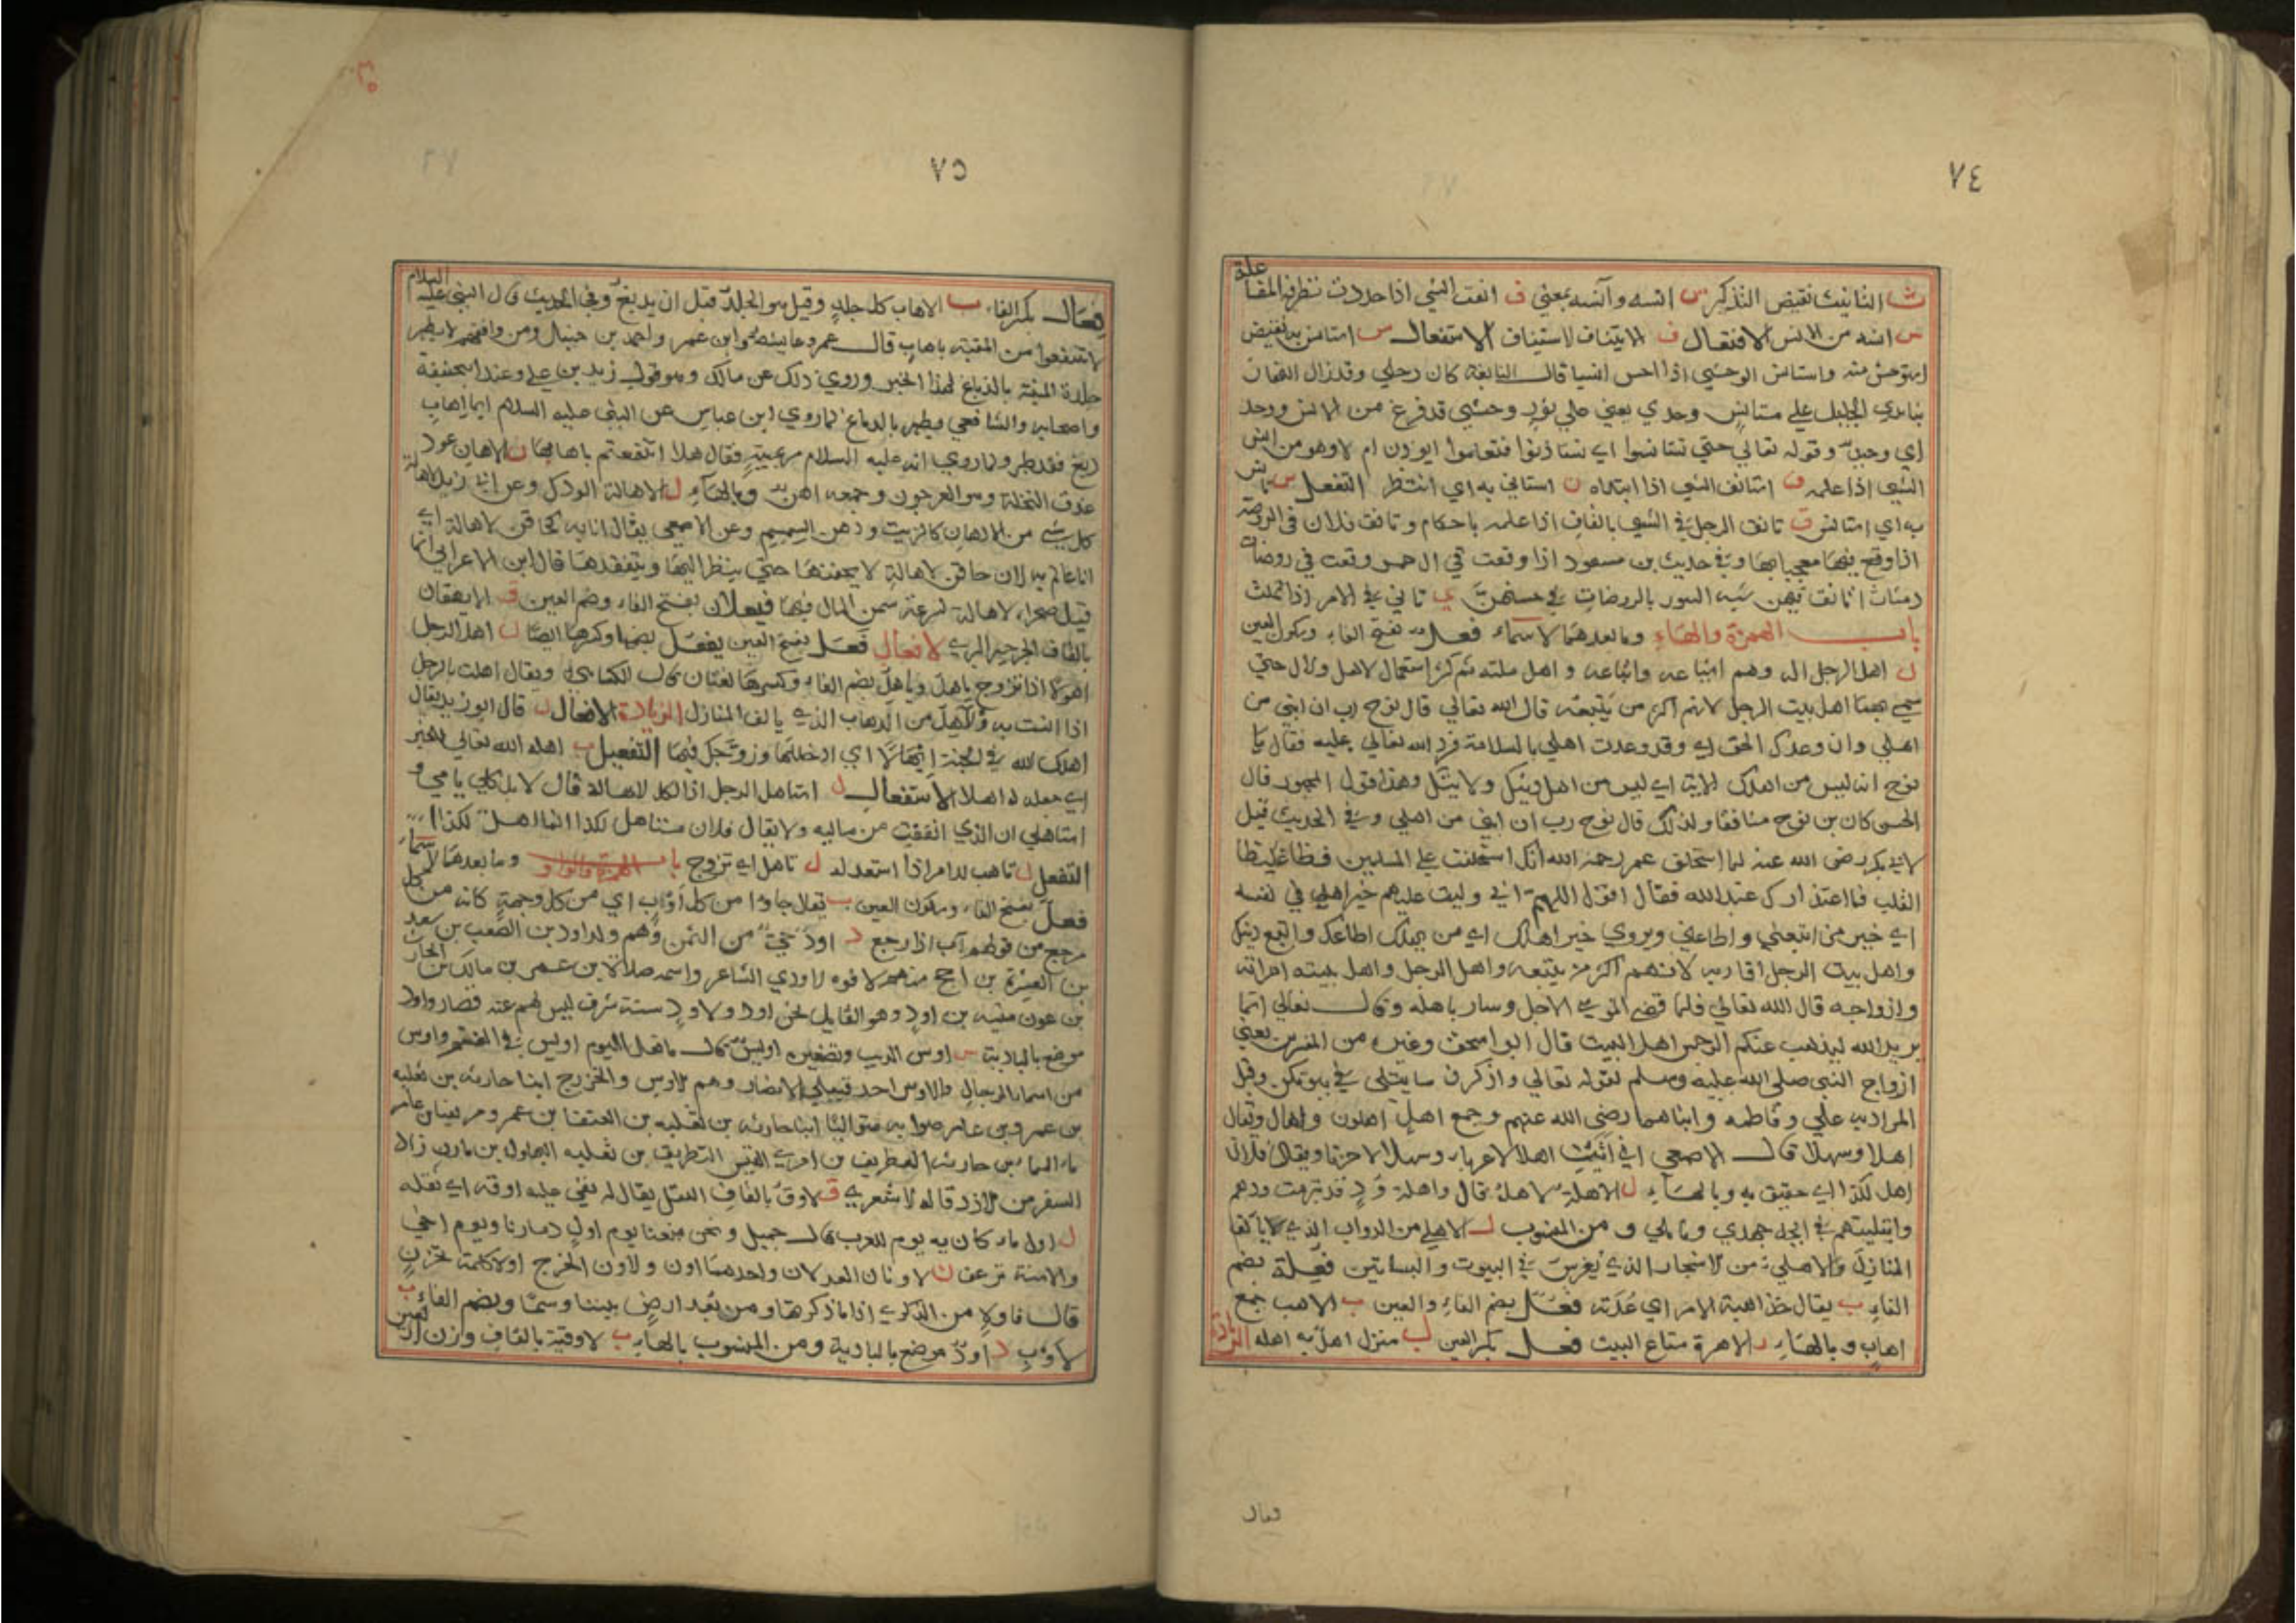 ٧٤
ث التانيث نقيض التذكير س انسه وآنسه بمعني ف انفت الشي اذا حددت نظرفه المفاعلة
س انسه من الانس الافتعال ف الايتناف الاستيناف الاستفعال س استانس به نقيض
استوحش منه واستانس الوحشي اذا احس انسيا قال النابغة كان رحلي وقد زال النهار
بنا بذي الجليل علي مستانس وحدي يعني علي ثور وحشي قد فزع من الانس ووحد
اي وحيد وقوله تعالي حتي تستانسوا اي تستاذنوا فتعلموا ايوذن ام لا وهو من انس
الشي اذا علمه ف استانف الشي اذا ابتداه ن استاني به اي انتظر التفعل س تانس
به اي استانس ق تانق الرجل في الشي بالقاف اذا عمله باحكام وتانق فلان في الروضة
اذا وقع فيها معجبا بها وفي حديث بن مسعود اذا وقعت في ال حم وقعت في روضات
دمثات اتانق فيهن شبه السور بالروضات في حسنهن ي تاني في الامر اذا تمكث
باب الهمزة والهاء وما بعدهما الاسماء فعل بفتح الفاء وسكون العين
ل اهل الرجل اله وهم اشياعه واتباعه واهل ملته ثم كثر استعمال الاهل والال حتي
سمي بهما اهل بيت الرجل لانهم اكثر من يتبعه قال الله تعالي قال نوح رب ان ابني من
اهلي وان وعدك الحق اي وقد وعدت اهلي بالسلامة فرد الله تعالي عليه فقال يا
نوح انه ليس من اهلك الاية اي ليس من اهل دينك ولا يتك وهذا قول الجمهور قال
الحسن كان بن نوح منافقا ولذلك قال نوح رب ان ابني من اهلي وفي الحديث قيل
لابي بكر رضي الله عنه لما استخلف عمر رحمه الله انك استخلفت علي المسلمين فظا غليظا
القلب فما اعتذارك عند الله فقال اقول اللهم اني وليت عليهم خير اهلي في نفسه
اي خير من اتبعني واطاعني ويروي خير اهلك اي من اهلك اطاعك واتبع دينك
واهل بيت الرجل اقاربه لانهم اكثر من يتبعه واهل الرجل واهل بيته امراته
وازواجه قال الله تعالي فلما قضي موسي الاجل وسار باهله وقال تعالي انما
يريد الله ليذهب عنكم الرجس اهل البيت قال ابو اسحق وغيره من المفسرين يعني
ازواج النبي صلي الله عليه وسلم لقوله تعالي واذكرن ما يتلي في بيوتكن وقيل
المراد به علي وفاطمه وابناهما رضي الله عنهم وجمع اهل اهلون واهال ويقال
اهلا وسهلا قال الاصمعي اي اتيت اهلا لا غرباء وسهلا لا حزنا ويقال فلان
اهل لكذا اي حقيق به وبالهاء ل الاهلة الاهل قال واهلة ود قد تبريت ودهم
وابليتهم في الجهد جهدي ونايلي و من المنسوب ل الاهلي من الدواب الذي يالف
المنازل والاهلي من الاشجار الذي يغرس في البيوت والبساتين فعلة بضم
الفاء ب يقال خذ اهبة الامر اي عدته فعل بضم الفاء والعين ب الاهب جمع
اهاب و بالهاء ر الاهرة متاع البيت فعل بكسر العين ل منزل اهل به اهله الزيادة
فعال
٧٥
فعال بكسر الفاء ب الاهاب كل جلد وقيل هو الجلد قبل ان يدبغ وفي الحديث قال النبي عليه السلام
لا تنتفعوا من الميتة باهاب قال عمر وعايشه وابن عمر واحمد بن حنبال ومن وافقهم لا يطهر
جلدة الميتة بالدباغ لهذا الخبر وروي ذلك عن مالك وهو قول زيد بن علي وعند ابي حنيفة
واصحابه والشافعي يطهر بالدباغ لما روي ابن عباس عن النبي عليه السلام ايما اهاب
دبغ فقد طهر ولما روي انه عليه السلام مر بميتة فقال هلا انتفعتم باهابها ن الاهان عود
عذق النخلة وهو العرجون وجمعه اهن وبالهاء ل الاهالة الودك وعن ابي زيد الاهالة
كل شي من الادهان كالزيت ودهن السمسم وعن الاصمعي يقال انا به كحاقن الاهالة اي
انا عالم به لان حاقن الاهالة لا يحقنها حتي ينظر اليها ويتفقدها قال ابن الاعرابي انما
قيل صحراء الاهالة لسرعة سمن المال فيها فيعلان بفتح الفاء وضم العين ق الايهقان
بالقاف الجرجير البري الافعال فعل بفتح العين يفعل بضمها وكسرها ايضا ل اهل الرجل
اهولا اذا تزوج ياهل وياهل بضم الهاء وكسرها لغتان قال الكسائي ويقال اهلت بالرجل
اذا انست به والاهل من الدواب الذي يالف المنازل الزيادة الافعال ل قال ابو زيد يقال
اهلك الله في الجنة ايهالا اي ادخلتها وزوجك فيها التفعيل ل اهله الله تعالي للخير
اي جعله له اهلا الاستفعال ل استاهل الرجل اذا اكل الاهالة قال لا بل كلي يا مي و
استاهلي ان الذي انفقت من ماليه ولا يقال فلان مستاهل لكذا انما اهل لكذا
التفعل ب تاهب للامر اذا استعد له ل تاهل اي تزوج باب الهمزة والواو وما بعدهما الاسماء
فعل بفتح الفاء وسكون العين ب يقال جاوا من كل اوب اي من كل وجهة كانه من كل
مرجع من قولهم آب اذا رجع د اود حي من اليمن وهم ولد اود بن الصعب بن سعد
بن العشيرة بن مذحج منهم الافوه الاودي الشاعر واسمه صلاة بن عمر بن مالك بن الحارث
بن عون منبه بن اود وهو القايل نحن اود ولاود سنة شرف ليس لهم عنه قصار واود
موضع بالبادية س اوس الذيب وتصغيره اويس قال ما فعل اليوم اويس في الغنم واوس
من اسماء الرجال والاوس احد قبيلي الانصار وهم الاوس والخزرج ابنا حارثه بن ثعلبه
بن عمرو بن عامر صوابه متواليا ابنا حارثه بن ثعلبه بن العنقا بن عمرو مزيقيا بن عامر
ماء السماء بن حارثه الغطريف بن امري القيس البطريق بن ثعلبه البهلول بن مازن زاد
السفر من الازد قاله الاشعري ق الاوق بالقاف الثقل يقال له يقي عليه اوقه اي ثقله
ل اول ماء كان به يوم للعرب قال جميل ونحن منعنا يوم اول دمارنا ويوم اخي
والاسنة ترعف ن الاونان العدلان واحدهما اون والاون الخرج اولا كلمة تحزن
قال فاوه من الذكري اذا ما ذكرتها ومن بعد ارض بيننا وسما وبضم الفاء ب
لاوب د اود موضع بالبادية ومن المنسوب بالهاء ب لاوقية بالقاف وزن اربعين